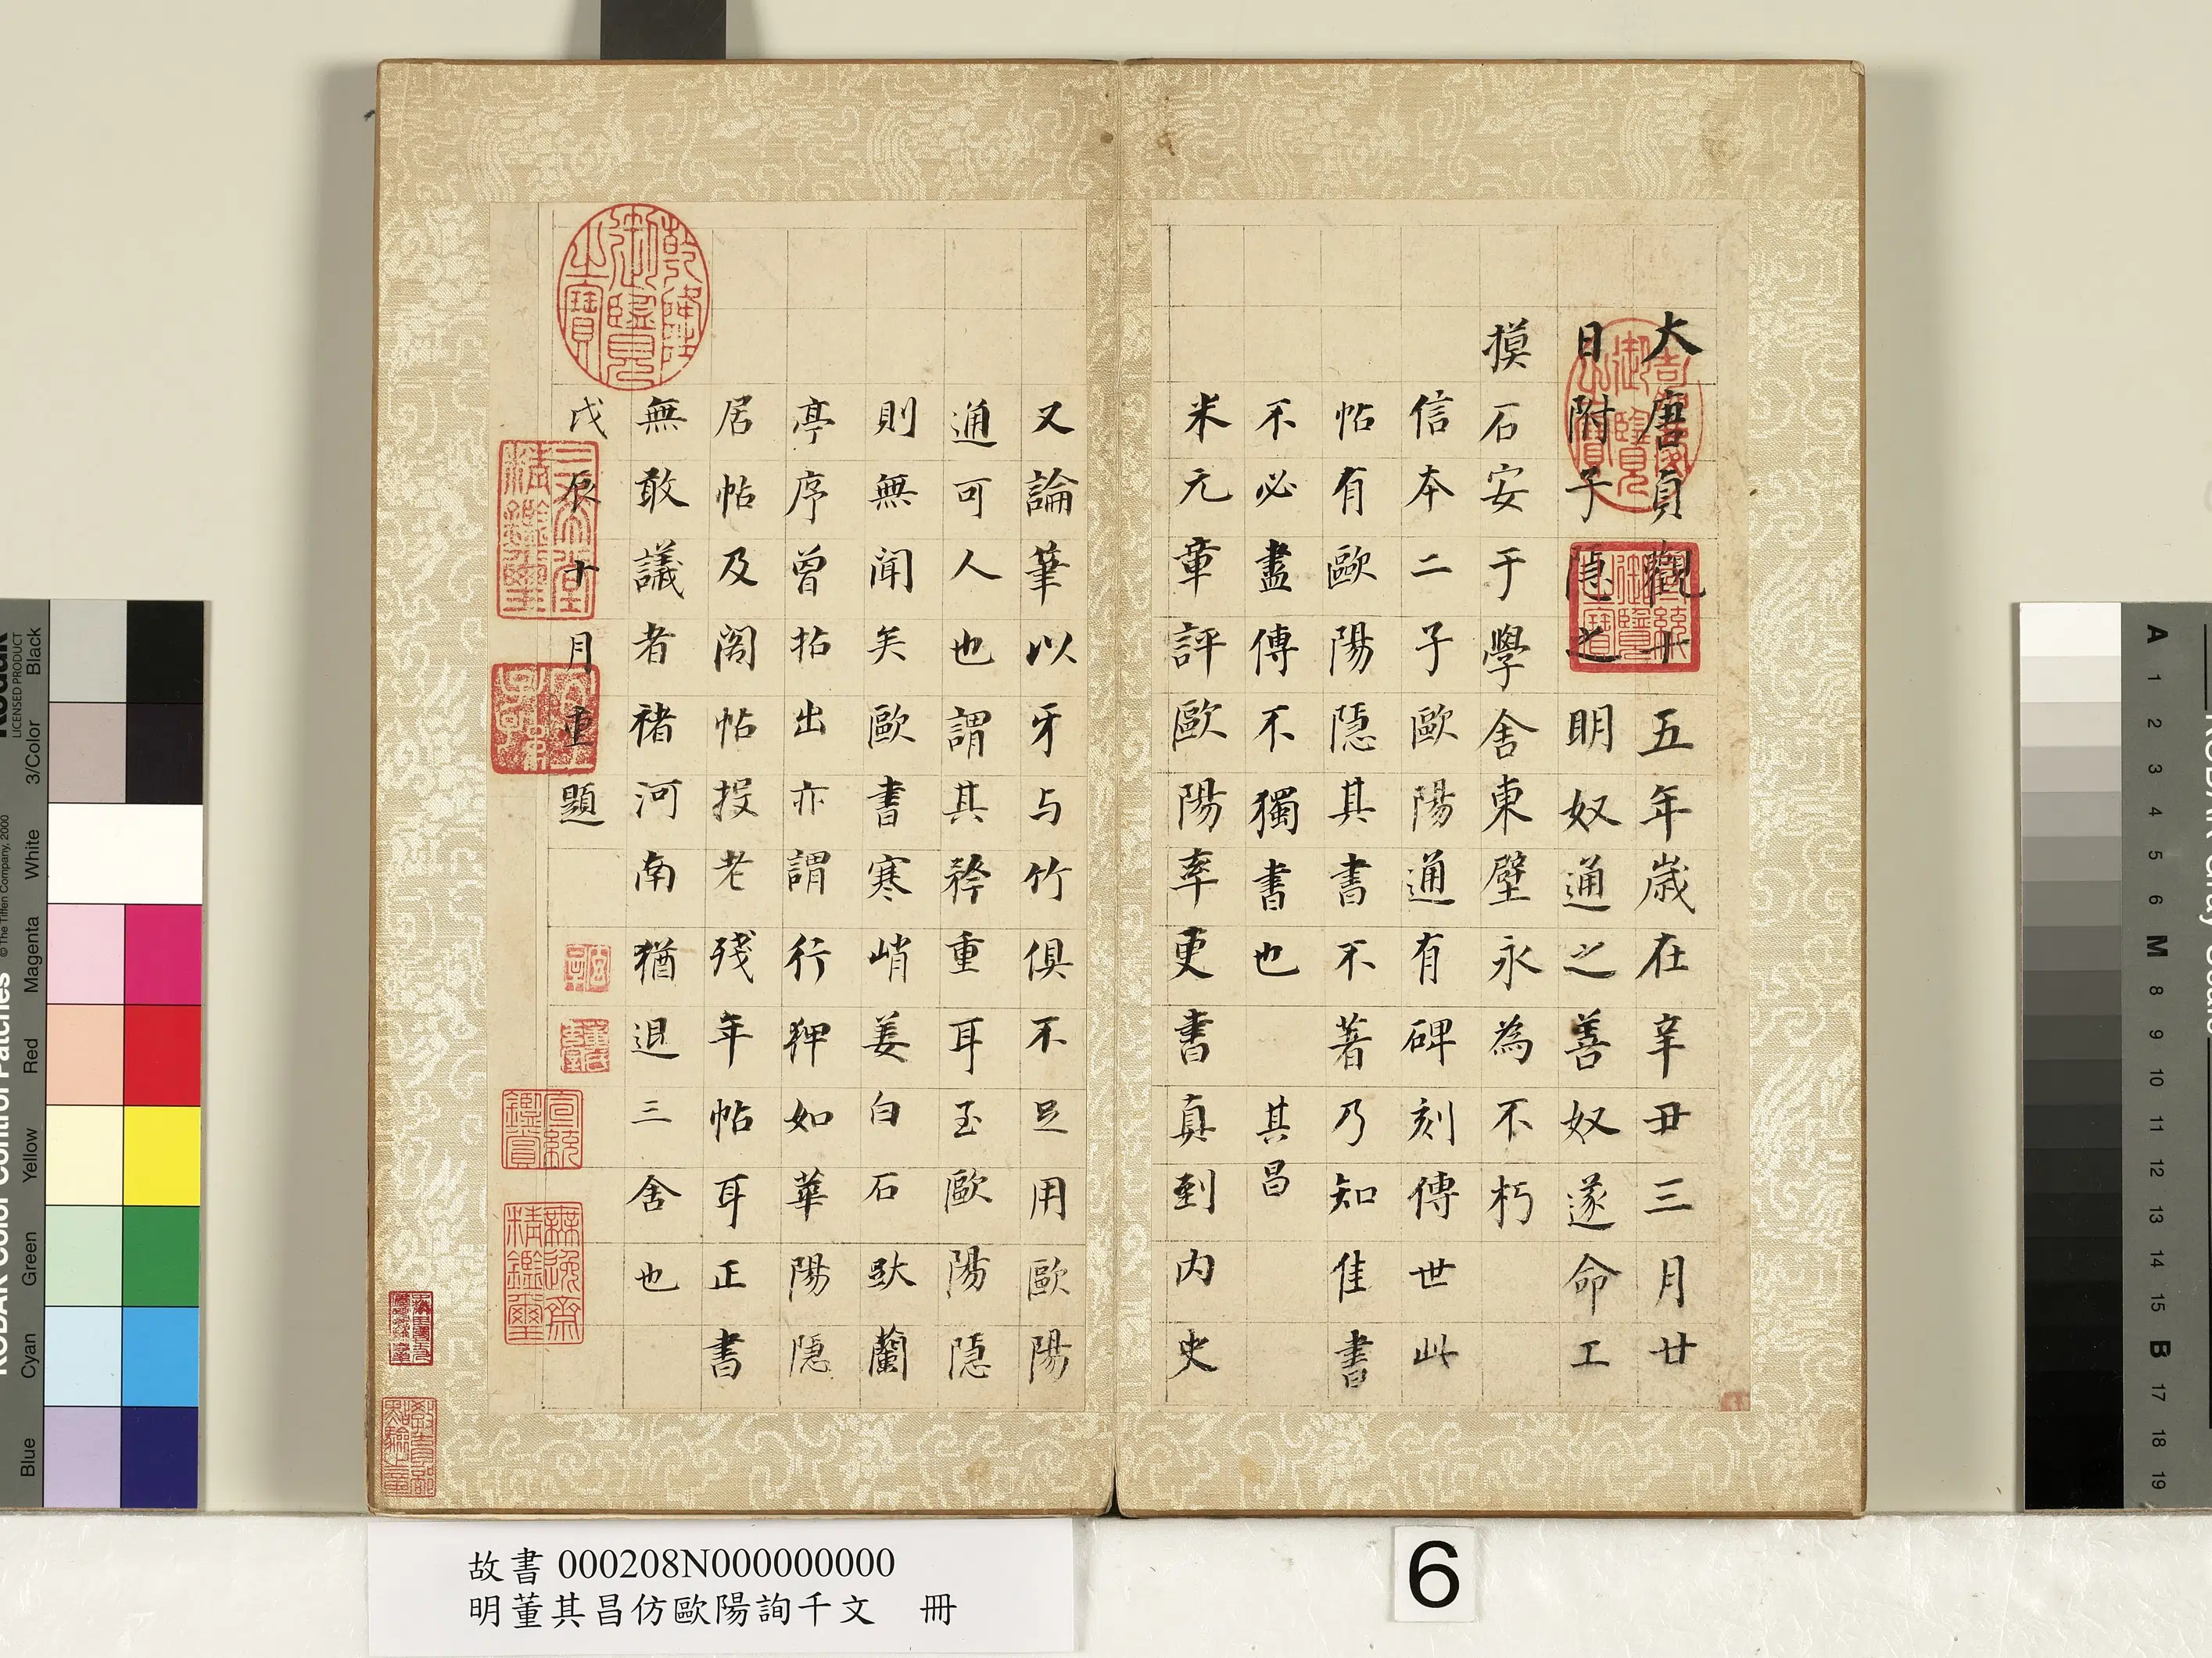 大唐貞觀十五年歲在辛丑三月廿
日附子隱之明奴通之善奴遂命工
摸石安于學舍東壁永為不朽
信本二子歐陽通有碑刻傳世此
帖有歐陽隱其書不著乃知佳書
不必盡傳不獨書也　其昌
米元章評歐陽率更書真到内史
又論筆以牙与竹俱不足用歐陽
通可人也謂其矜重耳至歐陽隱
則無聞矣歐書寒峭姜白石跋蘭
亭序曾拈出亦謂行狎如華陽隱
居帖及閣帖投老殘年帖耳正書
無敢議者褚河南猶退三舍也
戊辰十月重題
乾隆御覽之寶
嘉慶御覽之寶
宣統御覽之寶
三希堂精鑑璽
宜子孫
宣統鑑賞
無逸齋精鑑璽
故書 000208N000000000
明董其昌仿歐陽詢千文　冊
6
Kodak
LICENSED PRODUCT
Black
3/Color
White
Magenta
Red
Yellow
Green
Cyan
Blue
KODAK Color Control Patches
© The Tiffen Company, 2000
KODAK Gray Scale
A 1 2 3 4 5 6 M 8 9 10 11 12 13 14 15 B 17 18 19